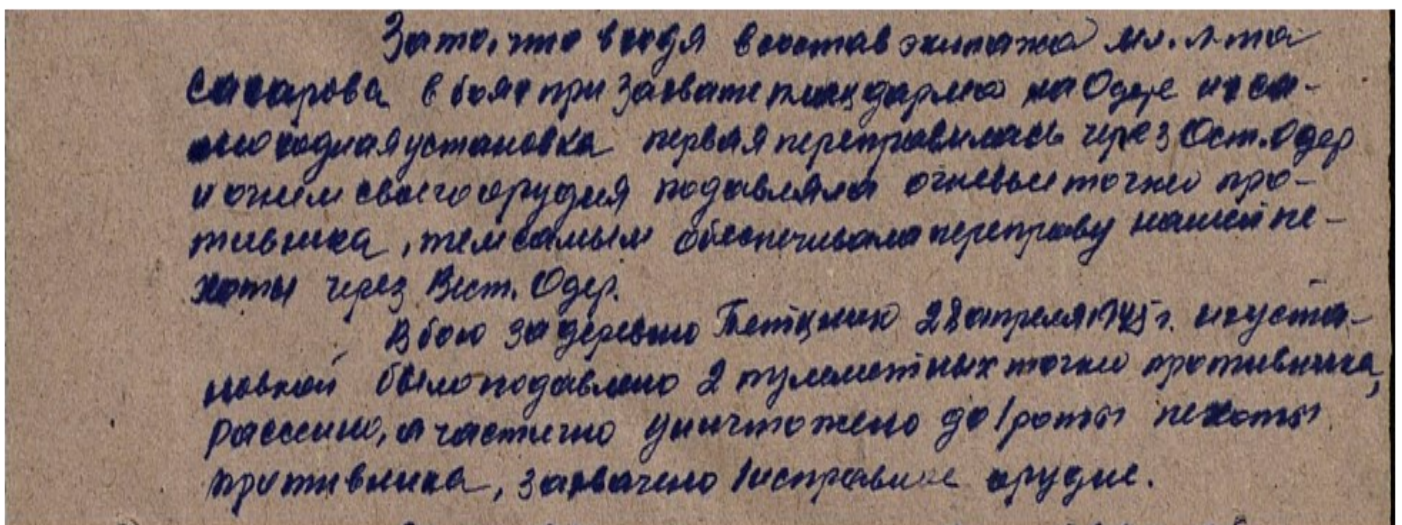 За то, что входя в состав экипажа мл. л-та
Сахарова в боях при захвате плацдарма на Одере их са-
моходная установка первая переправилась через Ост. Одер
и огнём своего орудия подавляла огневые точки про-
тивника, тем самым обеспечивала переправу нашей пе-
хоты через Вест. Одер.
В бою за деревню 28 апреля 1945 г. их уста-
новкой было подавлено 2 пулеметных точки противника,
рассеяно, и частично уничтожено до 1 роты пехоты
противника, захвачено 1 исправное орудие.